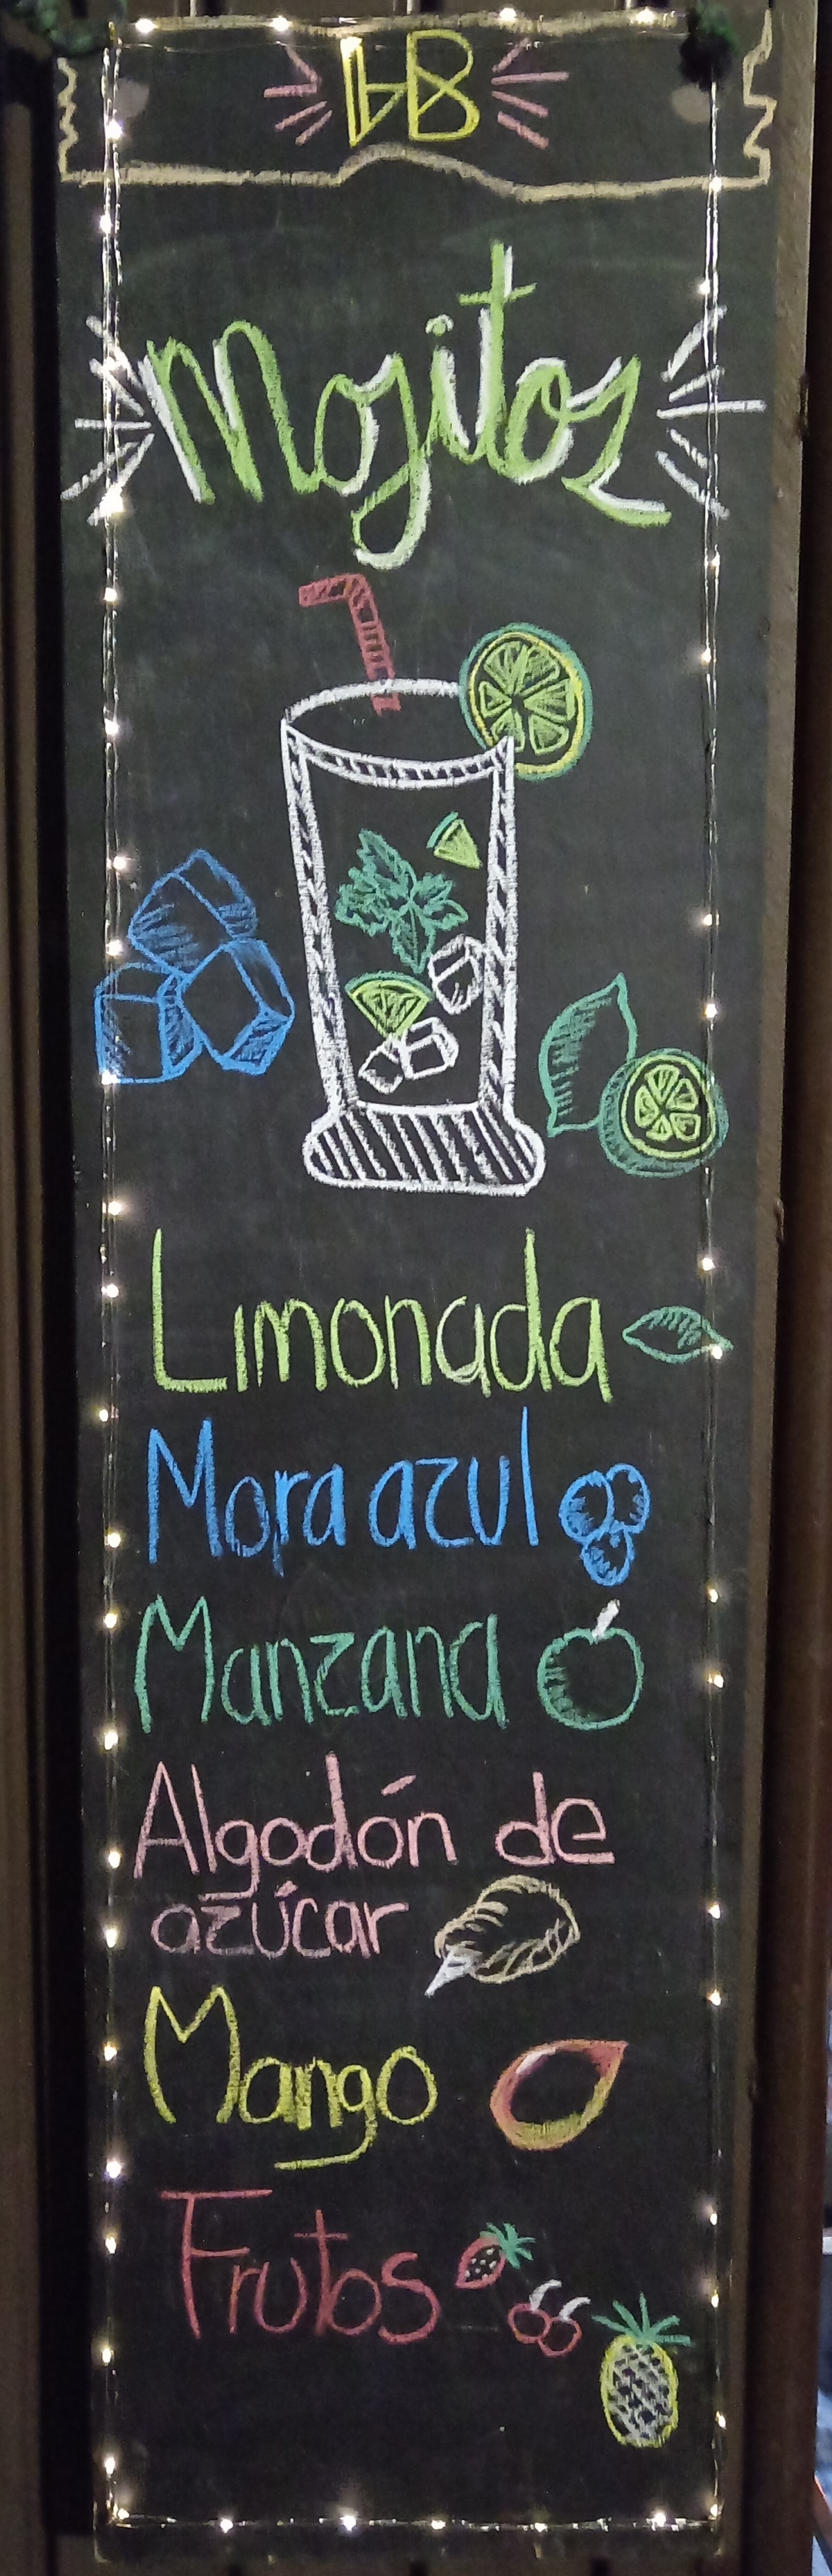 Mojitos
Limonada
Mora azul
Manzana
Algodón de
azúcar
Mango
Frutos